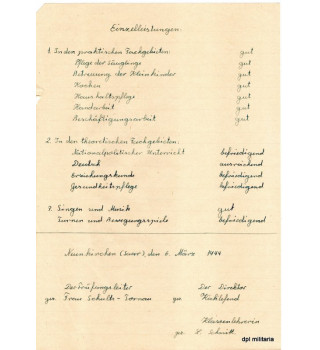 Einzelleistungen.
1. In den praktischen Fachgebieten: gut
Pflege des Säuglings gut
Betreuung der Kleinkinder gut
Kochen gut
Haushaltspflege gut
Handarbeit gut
Beschäftigungsarbeit gut
2. In den theoretischen Fachgebieten:
Nationalpolitischer Unterricht befriedigend
Deutsch ausreichend
Erziehungskunde befriedigend
Gesundheitspflege befriedigend
3. Singen und Musik gut
Turnen und Bewegungsspiele befriedigend
Neunkirchen (Saar), den 6. März 1944
Der Prüfungsleiter Der Direktor
gez. Frau Schultz- gez.
Klassenlehrerin
gez. H. Schmitt
dpl militaria